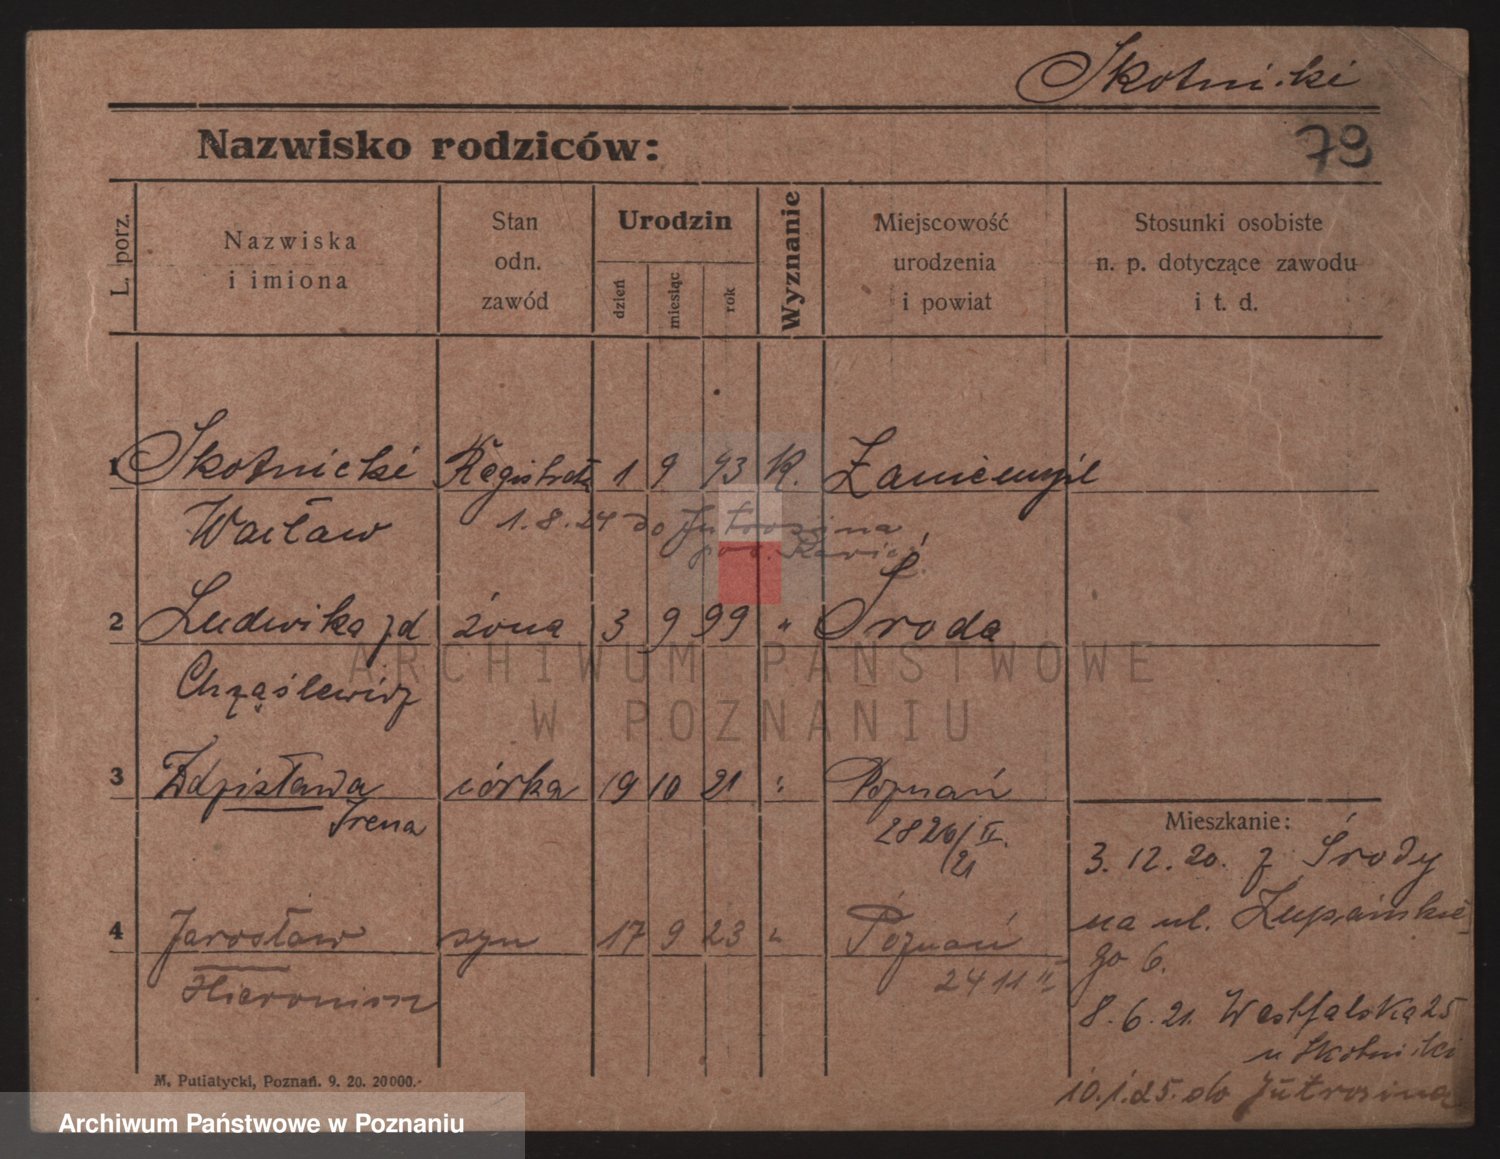 Skotnicki
Nazwisko rodziców: 79
L. porz.
Nazwiska
i imiona
Stan
odn.
zawód
Urodzin
dzień
miesiąc
rok
Wyznanie
Miejscowość
urodzenia
i powiat
Stosunki osobiste
n. p. dotyczące zawodu
i t. d.
1 Skotnicki 1 9 93 K. Zaniemyśl
Wacław 1.8.24 do Jutrosina
pow. Rawicz
2 Ludwika zd żona 3 9 99 " Środa
Chrząślewicz
3 Zdzisława córka 19 10 21 " Poznań
Irena 2826/II.
21
4 Jarosław syn 17 9 23 " Poznań
Hieronim 2411 II
Mieszkanie:
3.12.20. z Środy
na ul. Żupańskie-
go 6.
8.6.21. Westfalska 25
u Skotnicki
10.1.25. do Jutrosina
M. Putiatycki, Poznań. 9. 20. 20000.-
ARCHIWUM PAŃSTWOWE
W POZNANIU
Archiwum Państwowe w Poznaniu